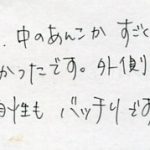 ．中のあんこが すごく
かったです。外側
目性も バッチリです